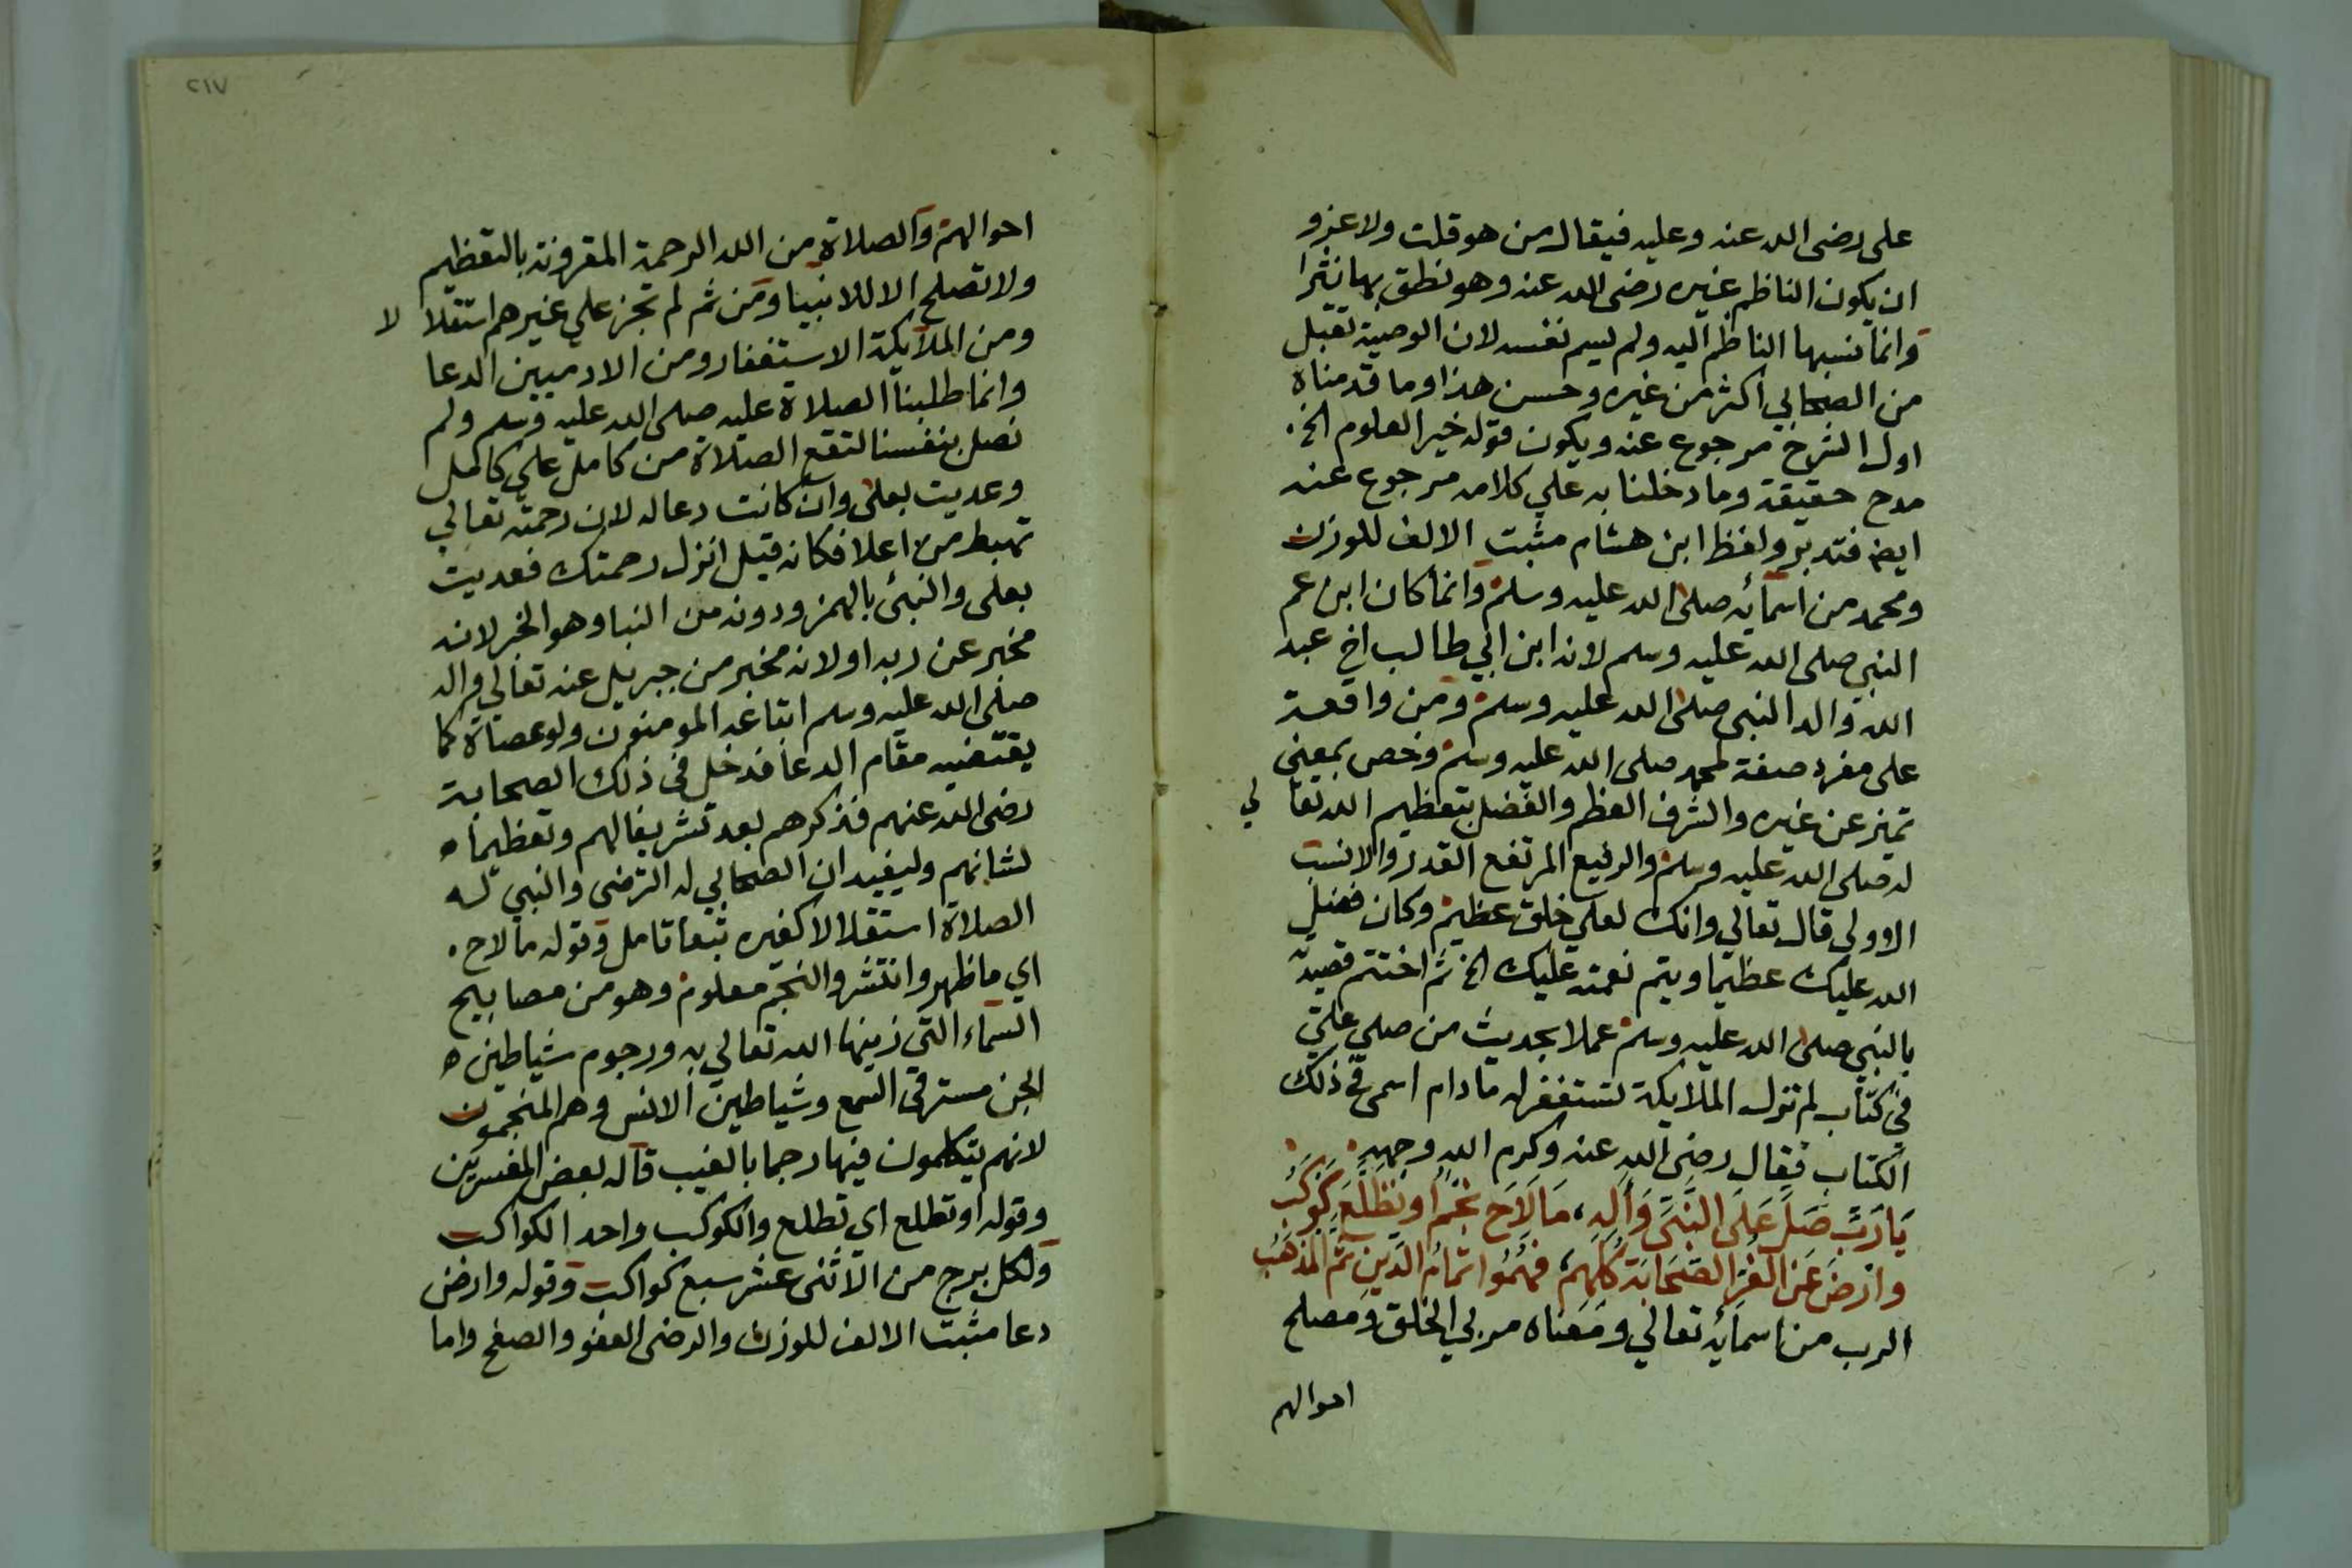 على رضى الله عنه وعليه فيقال من هو قلت ولا غرو
ان يكون الناظم غيره رضى الله عنه وهو نطق بها نثرا
وانما نسبها الناظم اليه ولم يسم نفسه لان الوصية تقبل
من الصحابي اكثر من غيره وحسن هذا وما قدمناه
اول الشرح مرجوع عنه ويكون قوله خير العلوم الخ
مدح حقيقة وما دخلنا به علي كلامه مرجوع عنه
ايض فتدبر ولفظ ابن هشام مثبت الالف للوزن
ومحمد من اسمائه صلى الله عليه وسلم وانما كان ابن عم
النبي صلى الله عليه وسلم لانه ابن ابي طالب اخ عبد
الله والد النبي صلى الله عليه وسلم ومن واقعة
على مفرد صفة لمحمد صلى الله عليه وسلم وخص بمعني
تميز عن غيره والشرف العظم والفضل بتعظيم الله تعالي
له صلى الله عليه وسلم والرفيع المرتفع القدر والانسب
الاولي قال تعالي وانك لعلي خلق عظيم وكان فضل
الله عليك عظيما ويتم نعمته عليك الخ ثم اختتم قصيدته
بالنبي صلى الله عليه وسلم عملا بحديث من صلي علي
في كتاب لم تزل الملايكة تستغفر له ما دام اسمى في ذلك
الكتاب فقال رضى الله عنه وكرم الله وجهه
يَا رَبِّ صَلِّ عَلَى النَّبِيِّ وَاٰلِهِ، مَا لَاحَ نَجْمٌ او تَطَلَّعَ كَوْكَبُ
وارْضَ عَنِ الغُرِّ الصَّحَابَةِ كُلِّهِمْ، فَهُمُوا تمامُ الدِّينِ ثُمَّ المَذْهَبُ
الرب من اسمائه تعالي ومعناه مربي الخلق ومصلح
احوالهم
٢١٧
احوالهم والصلاة من الله الرحمة المقرونة بالتعظيم
ولا تصلح الا للانبيا ومن ثم لم تجز علي غيرهم استقلالا
ومن الملايكة الاستغفار ومن الادميين الدعا
وانما طلبنا الصلاة عليه صلى الله عليه وسلم ولم
نصل بنفسنا لتقع الصلاة من كامل علي كامل
وعديت بعلى وان كانت دعا له لان رحمته تعالي
تهبط من اعلا فكانه قيل انزل رحمتك فعديت
بعلى والنبئ بالهمز ودونه من النبا وهو الخبر لانه
مخبر عن ربه او لانه مخبر من جبريل عنه تعالي واله
صلى الله عليه وسلم اتباعه المومنون ولو عصاة كما
يقتضيه مقام الدعا فدخل في ذلك الصحابة
رضى الله عنهم فذكرهم بعد تشريفا لهم وتعظيما
لشانهم وليفيد ان الصحابي له الترضى والنبي له
الصلاة استقلالا كغيره تبعا تامل وقوله ما لاح
اي ما ظهر وانتشر والنجم معلوم وهو من مصابيح
السماء التي زينها الله تعالي به ورجوم شياطين
الجن مسترقي السمع وشياطين الانس وهم المنجمون
لانهم يتكلمون فيها رجما بالغيب قاله بعض المفسرين
وقوله او تطلع اي تطلع والكوكب واحد الكواكب
ولكل برج من الاثنى عشر سبع كواكب وقوله وارض
دعا مثبت الالف للوزن والرضى العفو والصفح واما